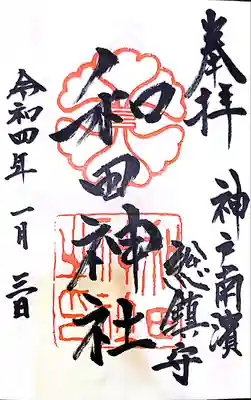 奉拝
神戸南濱
総鎮守
和田神社
令和四年一月三日